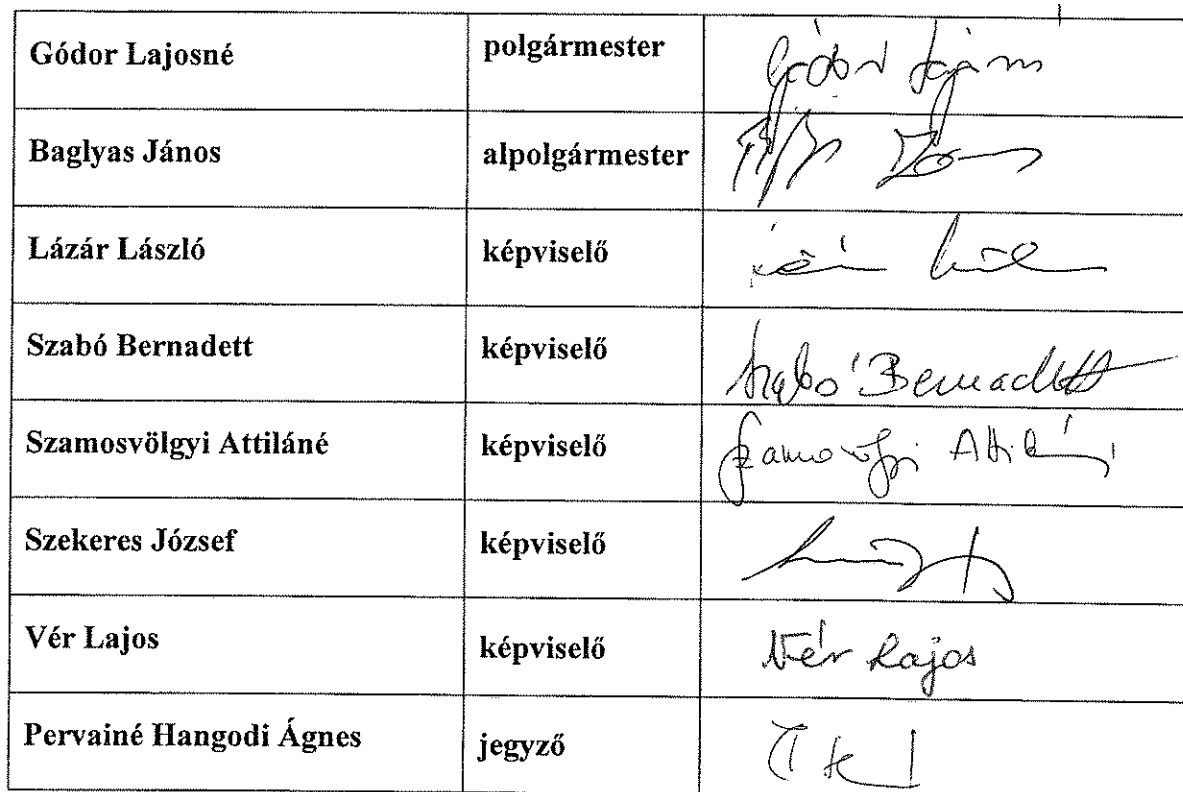 Gódor Lajosné polgármester Gódor Lajosné
Baglyas János alpolgármester
Lázár László képviselő
Szabó Bernadett képviselő Szabó Bernadett
Szamosvölgyi Attiláné képviselő Szamosvölgyi Attiláné
Szekeres József képviselő
Vér Lajos képviselő Vér Lajos
Pervainé Hangodi Ágnes jegyző